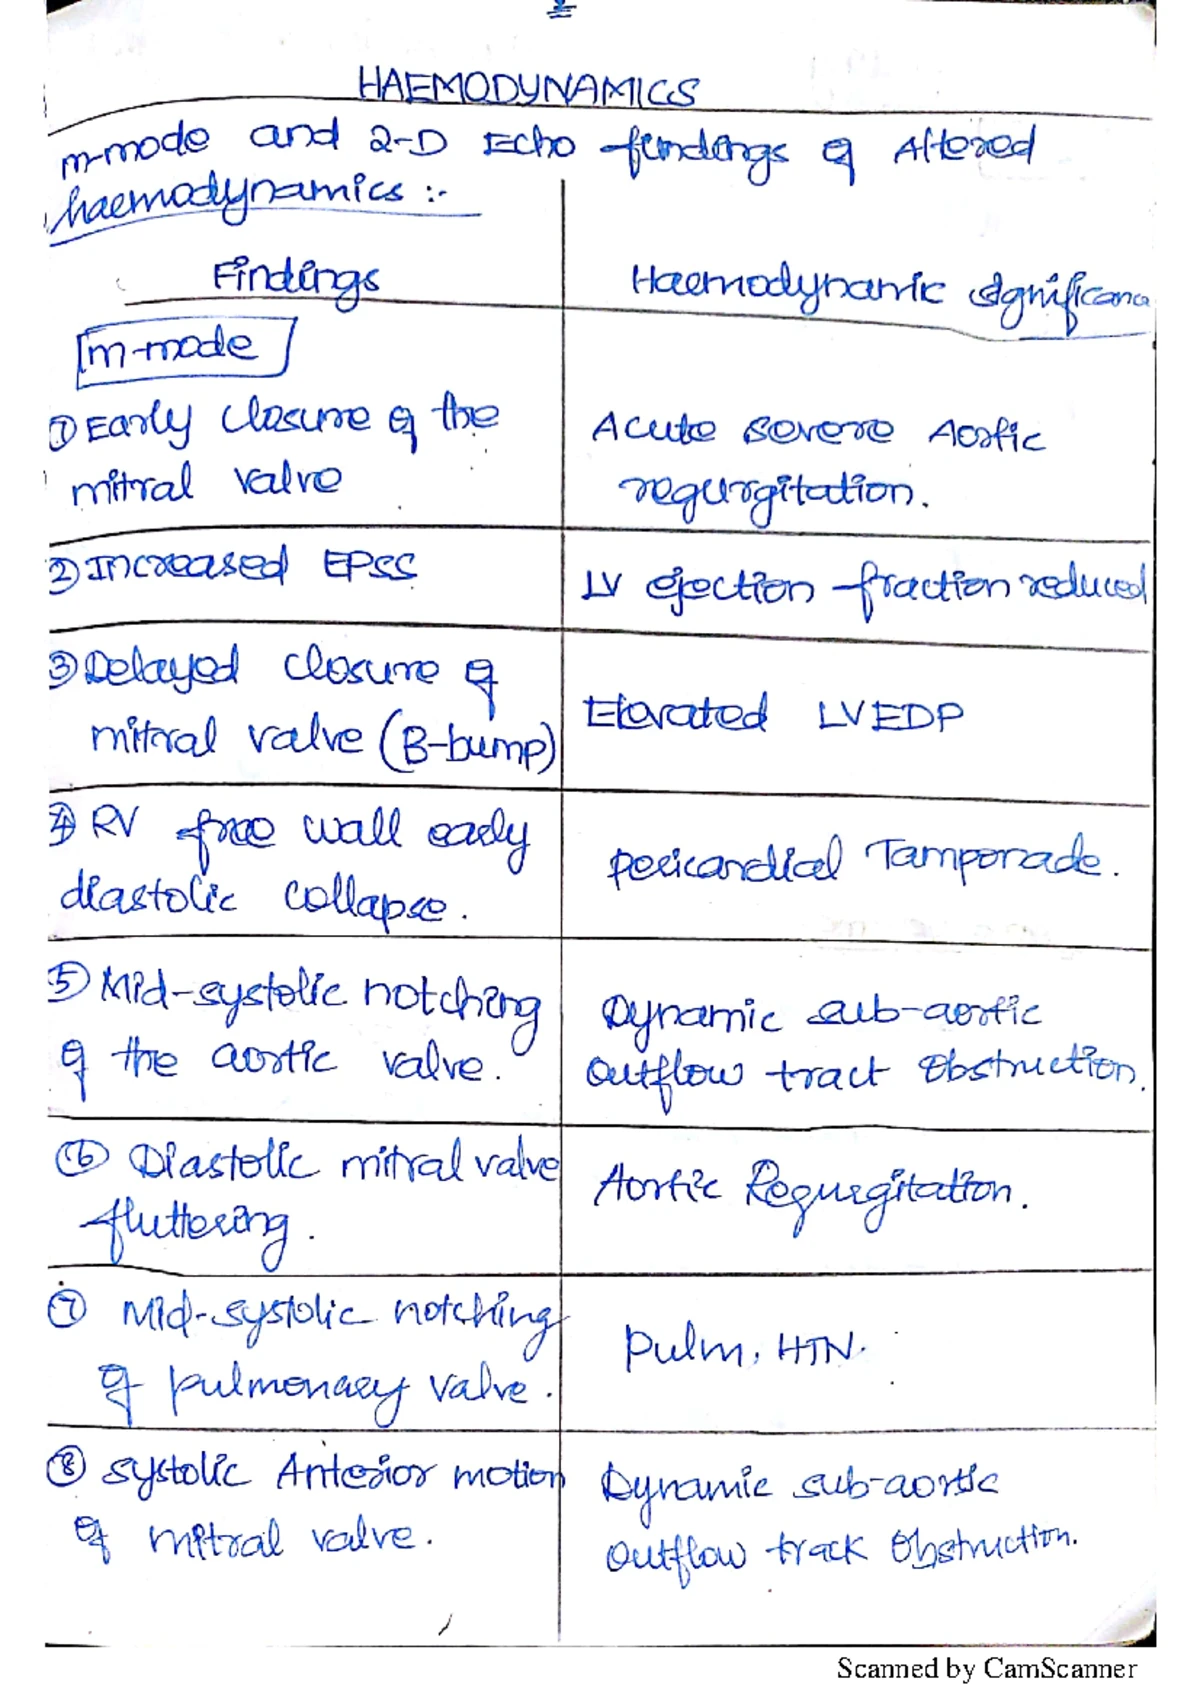 HAEMODYNAMICS
M-mode and 2-D Echo findings of Altered
haemodynamics :-
Findings
Haemodynamic significance
M-mode
① Early closure of the
mitral valve
Acute severe Aortic
regurgitation.
② Increased EPSS
LV ejection fraction reduced
③ Delayed closure of
mitral valve (B-bump)
Elevated LVEDP
④ RV free wall early
diastolic collapse.
Pericardial Tamponade.
⑤ Mid-systolic notching
of the aortic valve.
Dynamic sub-aortic
outflow tract obstruction.
⑥ Diastolic mitral valve
fluttering.
Aortic Regurgitation.
⑦ Mid-systolic notching
of pulmonary valve.
Pulm. HTN.
⑧ Systolic Anterior motion
of mitral valve.
Dynamic sub-aortic
outflow track obstruction.
Scanned by CamScanner